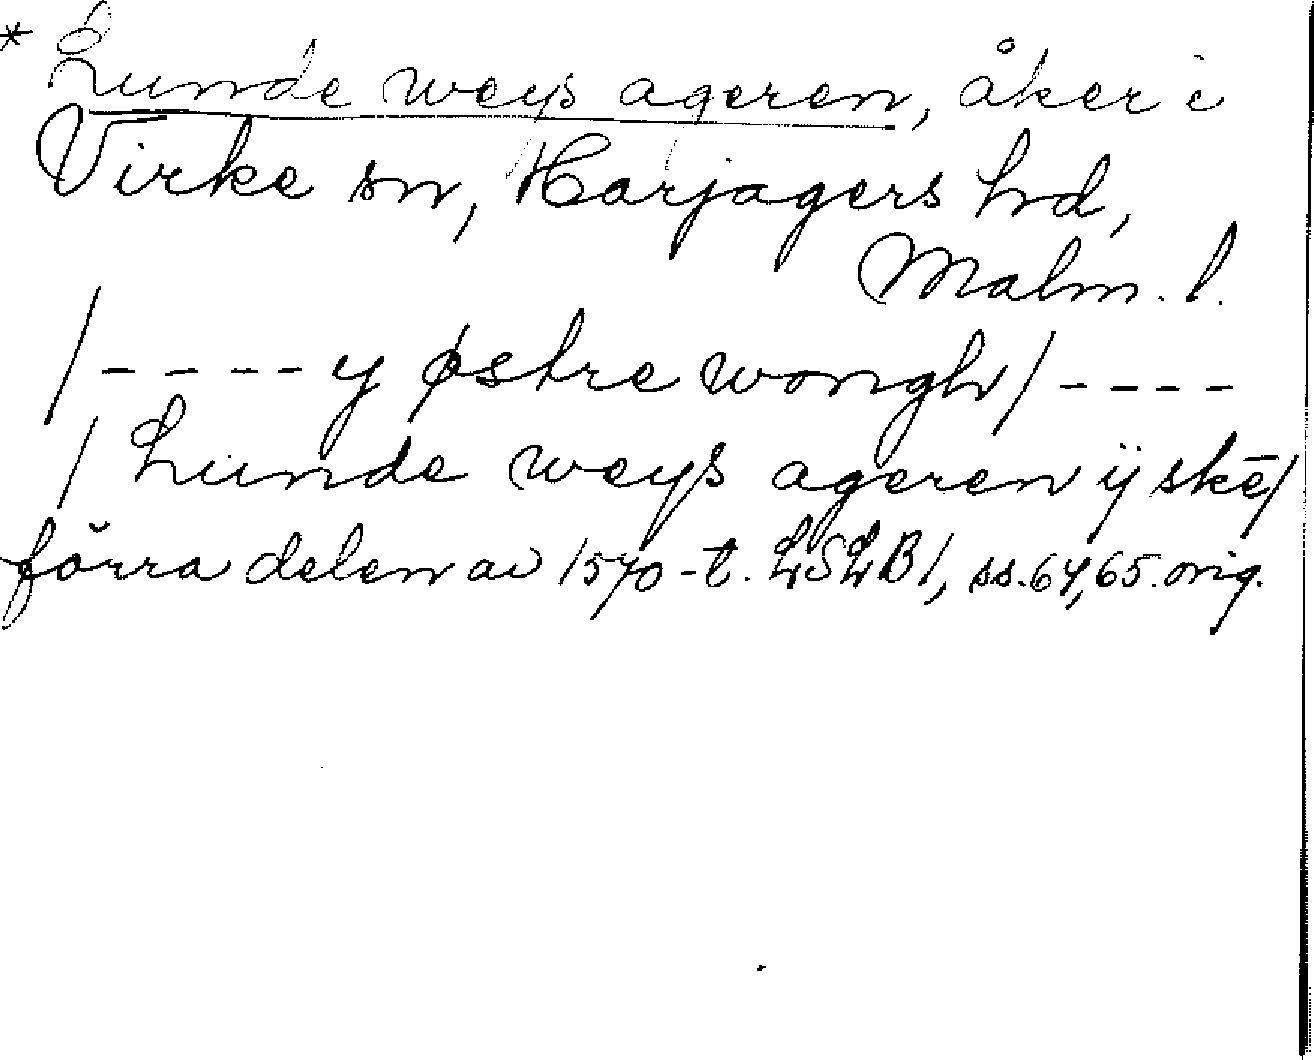 * Lunde weys ageren, åker i
Virke sn, Harjagers hd,
Malm. l.
/---- y østre wongh/----
/ Lunde weys ageren ij skē/
förra delen av 1570-t. LSLB1, ss.64,65.orig.